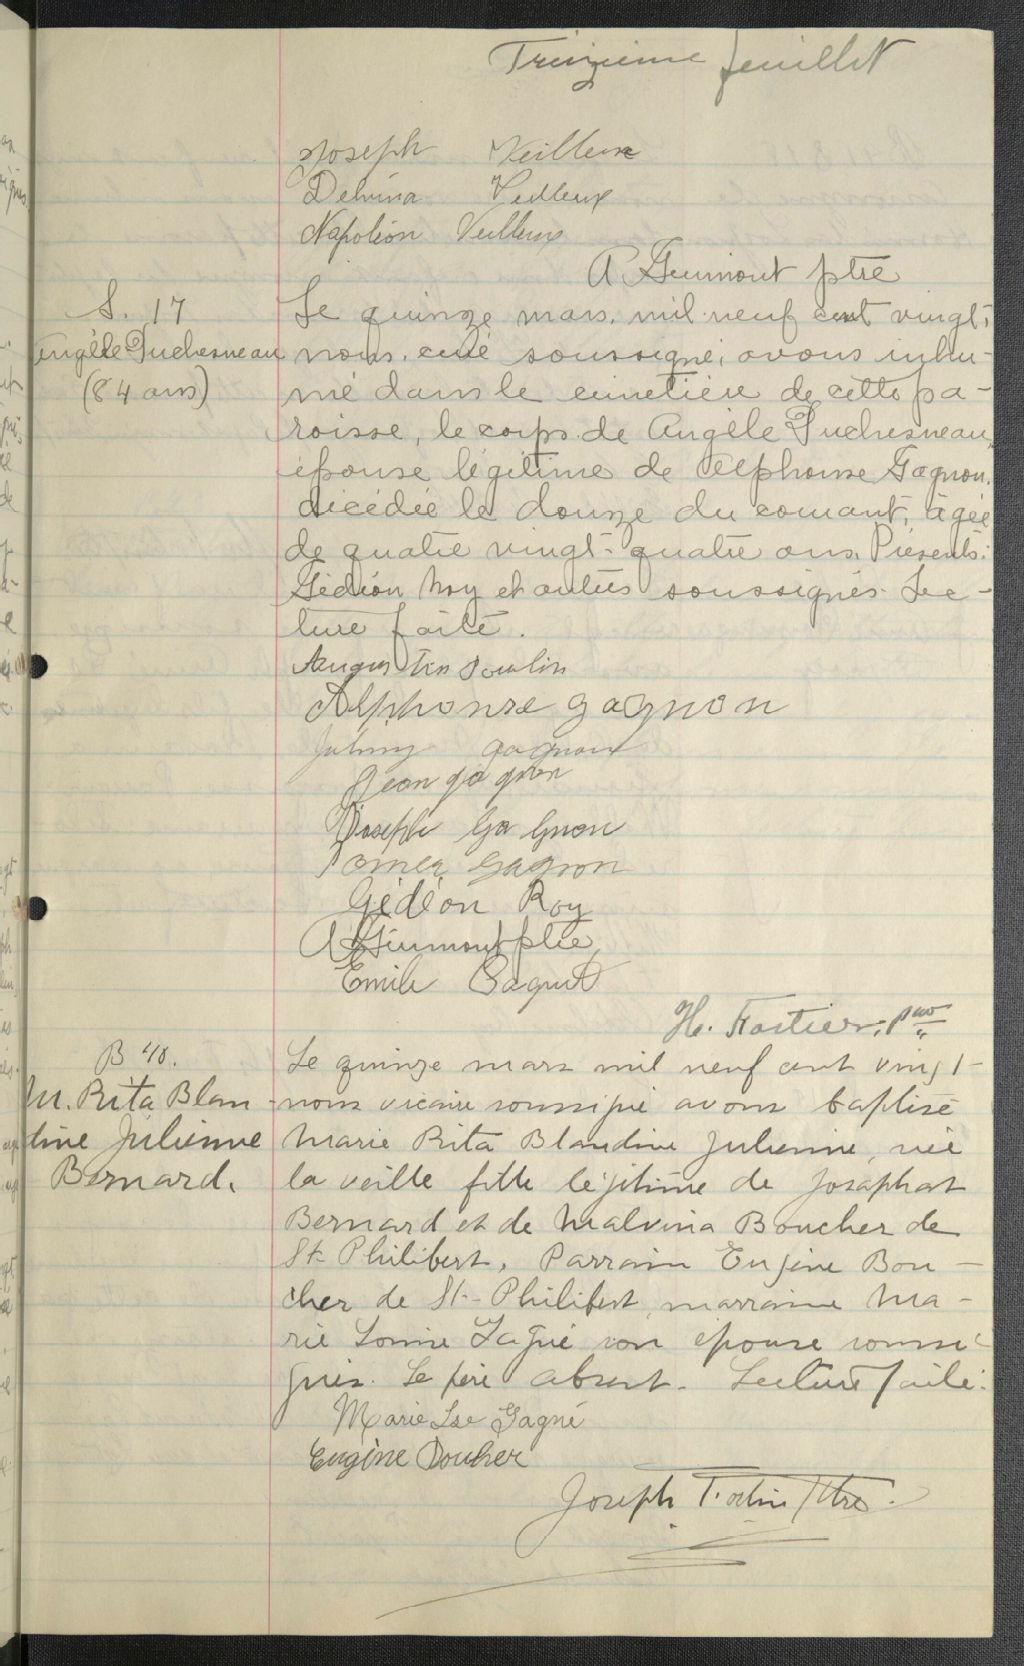 Treizième feuillet
Joseph Veilleux
Delvina Veilleux
Napoléon Veilleux
A. Guimont ptre
S. 17
Angèle Duchesneau
(84 ans)
Le quinze mars, mil neuf cent vingt,
nous, curé soussigné, avons inhu-
mé dans le cimetière de cette pa-
roisse, le corps de Angèle Duchesneau,
épouse légitime de Alphonse Gagnon,
décédée le douze du courant, âgée
de quatre vingt-quatre ans. Présents:
Gédéon Roy et autres soussignés. Lec-
ture faite.
Augustin Poulin
Alphonse Gagnon
Johnny gagnon
Jean gagnon
Joseph Gagnon
Gagnon
Gédéon Roy
A Guimont ptre
Emile Paquet
H. Fortier, ptre
B 40.
M. Rita Blan-
dine Julienne
Bernard.
Le quinze mars mil neuf cent vingt-
nous vicaire soussigné avons baptisé
Marie Rita Blandine Julienne, née
la veille fille légitime de Josaphat
Bernard et de Malvina Boucher de
St-Philibert. Parrain Eugène Bou-
cher de St-Philibert, marraine Ma-
rie Louise Gagné son épouse soussi-
gnés. Le père absent. Lecture faite.
Marie Lse Gagné
Eugène Boucher
Joseph Fortin Ptre.